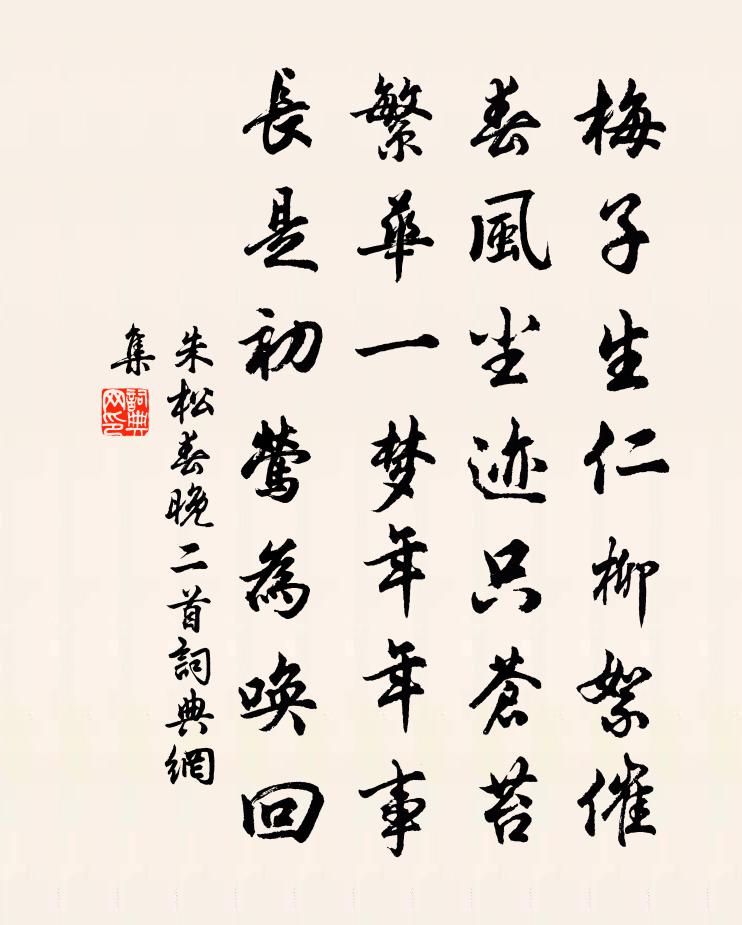 梅子生仁柳絮催
春風尘迹只蒼苔
繁華一梦年年事
長是初鶯為唤回
朱松春晚二首詞典網
集
詞典网印